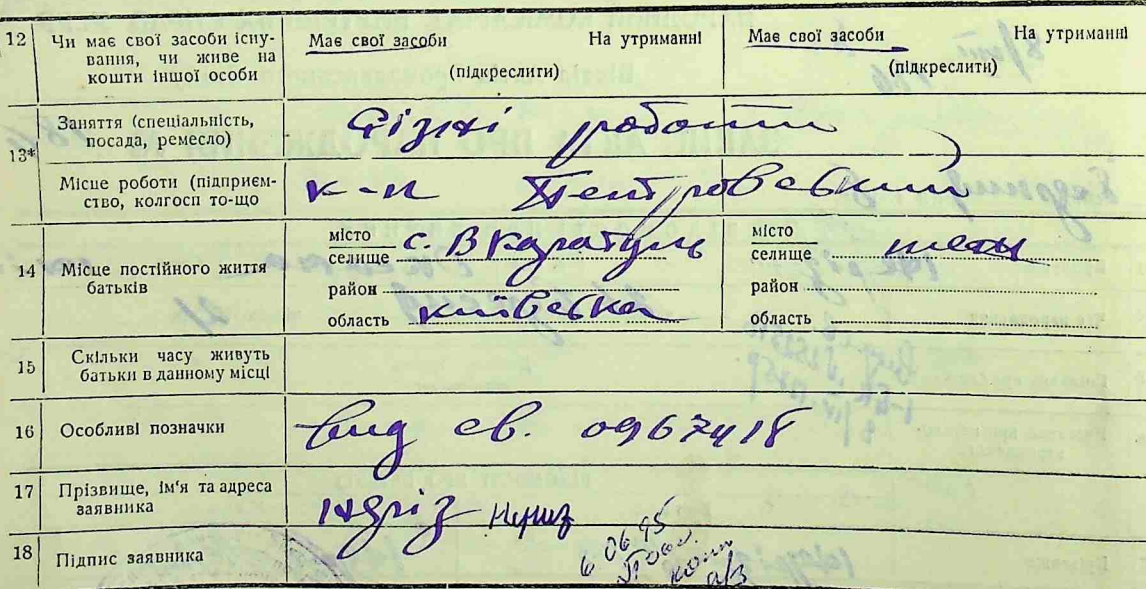 12 Чи має свої засоби існування, чи живе на кошти іншої особи
Має свої засоби На утриманні (підкреслити)
Має свої засоби На утриманні (підкреслити)
13* Заняття (спеціальність, посада, ремесло)
Фізичні роботи
Місце роботи (підприємство, колгосп то-що
к-п
14 Місце постійного життя батьків
місто
селище с. В Каратуль
район
область київська
місто
селище
район
область
15 Скільки часу живуть батьки в данному місці
16 Особливі позначки
вид св. 0967418
17 Прізвище, ім'я та адреса заявника
18 Підпис заявника